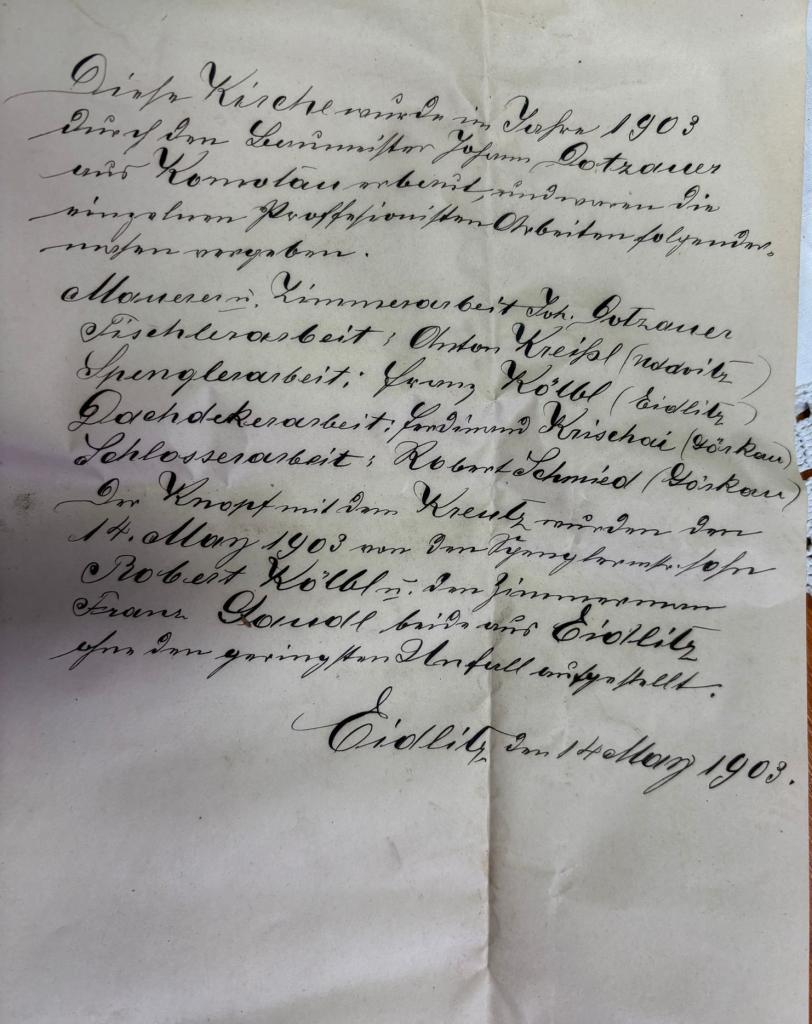 Diese Kirche wurde im Jahre 1903
durch den Baumeister Johann Dotzauer
aus Komotau erbaut, und waren die
einzelnen Proffesionisten Arbeiten folgender-
masen vergeben.
Maurer u. Zimmerarbeit Joh. Dotzauer
Tischlerarbeit: Anton Kreißl (Udwitz)
Spenglerarbeit: Franz Kölbl (Eidlitz)
Dachdekerarbeit: Ferdinand Krischai (Görkau)
Schlosserarbeit: Robert Schmied (Görkau)
Der Knopf mit dem Kreutz wurden den
14. May 1903 von den Spenglermstr. sohn
Robert Kölbl u. den Zimmerman
Franz Gaudl beide aus Eidlitz
ohne den geringsten Unfall aufgestellt.
Eidlitz, den 14 May 1903.